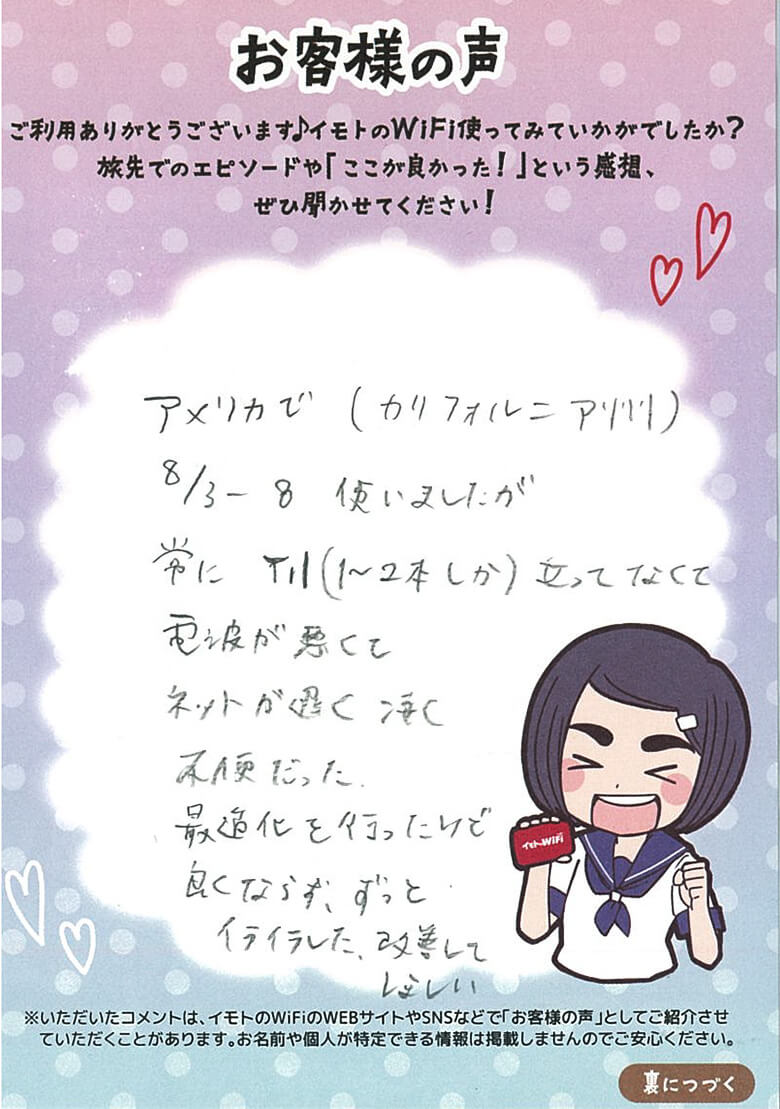 お客様の声
ご利用ありがとうございます♪イモトのWiFi使ってみていかがでしたか?
旅先でのエピソードや「ここが良かった!」という感想、
ぜひ聞かせてください!
アメリカで (カリフォルニアリ州)
8/3ー8 使いましたが
常に (1〜2本しか) 立ってなくて
電波が悪くて
ネットが遅く 凄く
不便だった.
最適化を行ったけど
良くならず、ずっと
イライラした、改善して
ほしい
イモトのWiFi
※いただいたコメントは、イモトのWiFiのWEBサイトやSNSなどで「お客様の声」としてご紹介させ
ていただくことがあります。お名前や個人が特定できる情報は掲載しませんのでご安心ください。
裏につづく